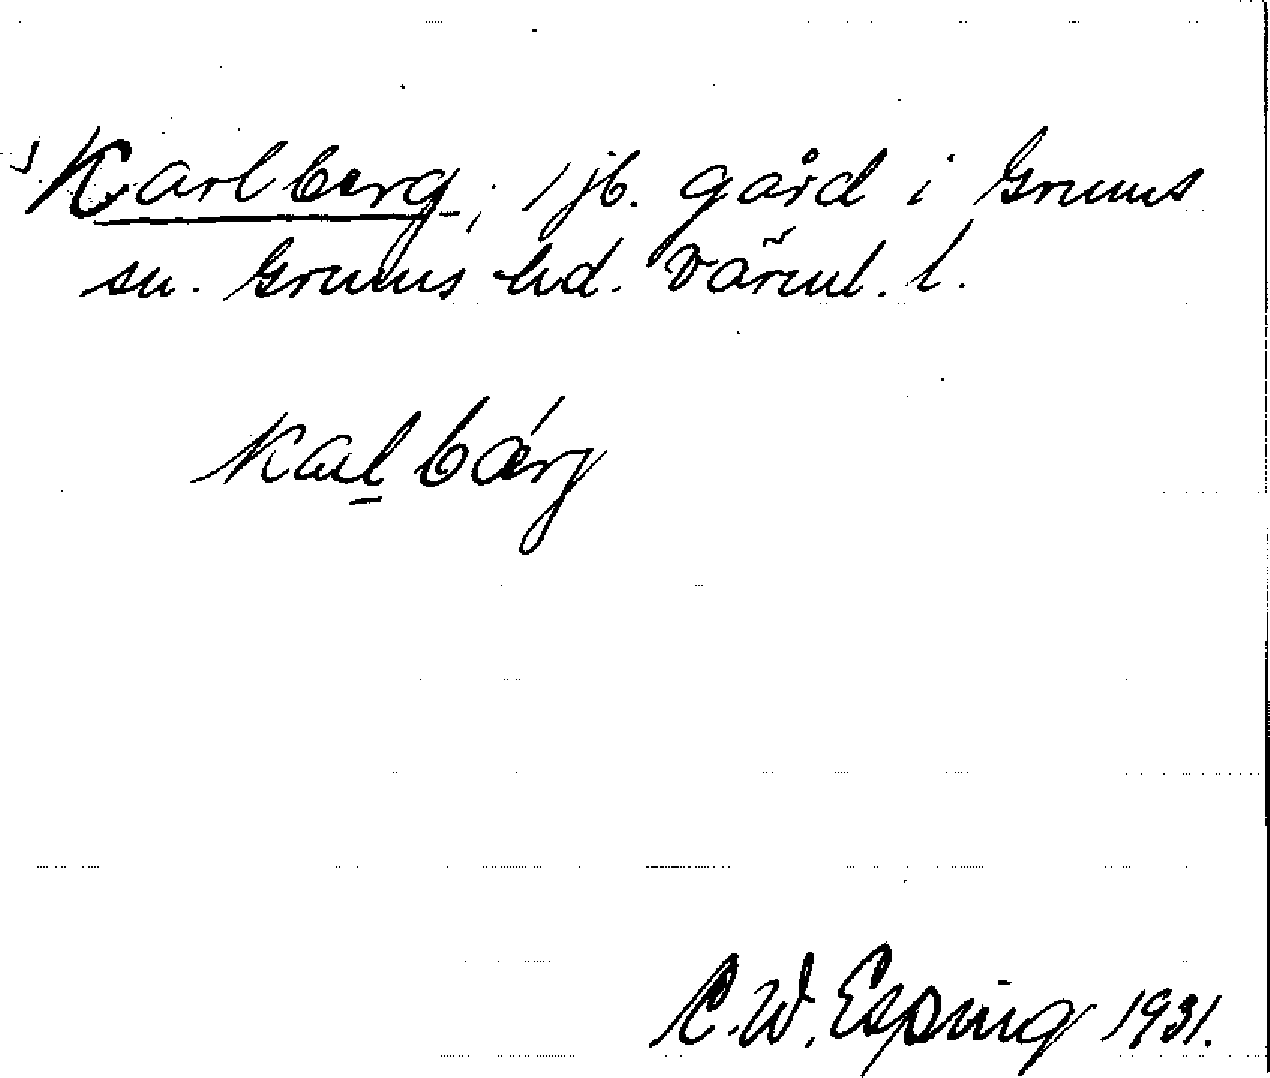 Karlberg; 1 jb. gård i Grums
sn. Grums hd. Värml. l.
Kaɑl bærj
C.W. Esping 1931.